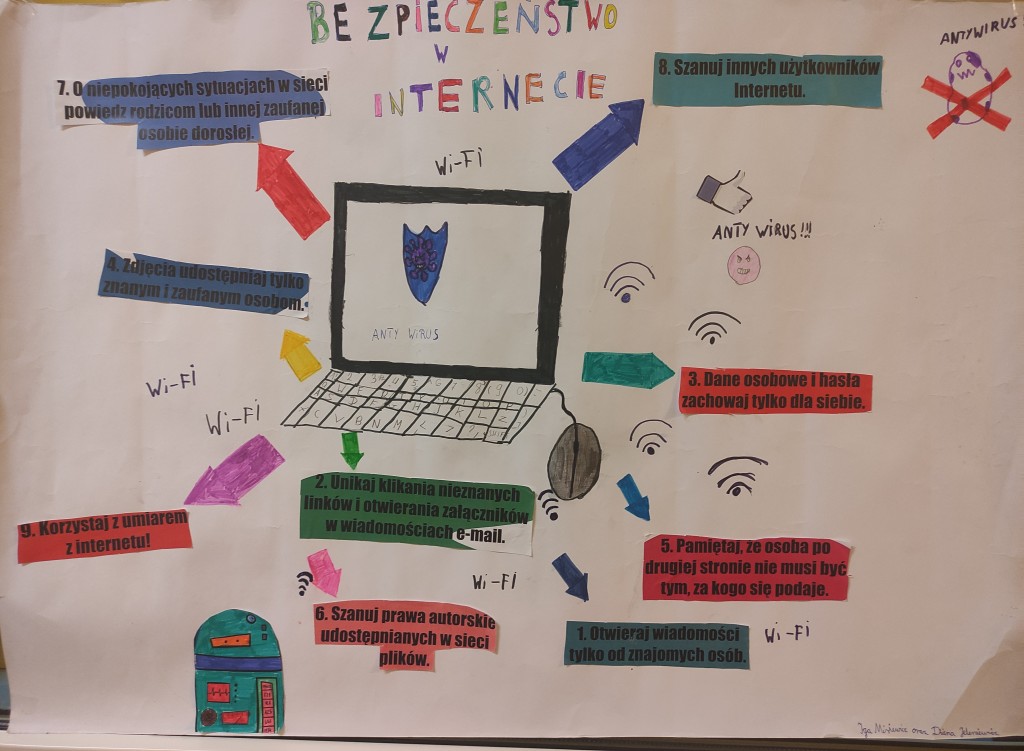 BEZPIECZEŃSTWO
W
INTERNECIE
ANTYWIRUS
7. O niepokojących sytuacjach w sieci
powiedz rodzicom lub innej zaufanej
osobie dorosłej.
8. Szanuj innych użytkowników
Internetu.
Wi-Fi
ANTY WiRUS!!!
4. Zdjęcia udostępniaj tylko
znanym i zaufanym osobom.
ANTY WiRUS
3. Dane osobowe i hasła
zachowaj tylko dla siebie.
Wi-Fi
Wi-Fi
2. Unikaj klikania nieznanych
linków i otwierania załączników
w wiadomościach e-mail.
9. Korzystaj z umiarem
z internetu!
5. Pamiętaj, że osoba po
drugiej stronie nie musi być
tym, za kogo się podaje.
Wi-Fi
6. Szanuj prawa autorskie
udostępnianych w sieci
plików.
1. Otwieraj wiadomości
tylko od znajomych osób.
Wi-Fi
Iga oraz